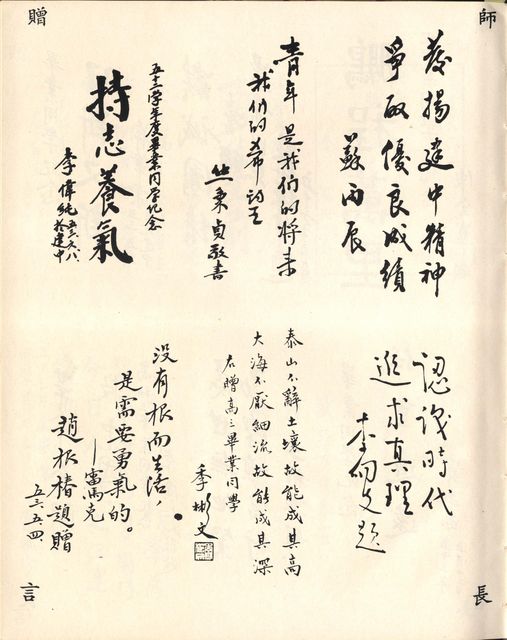 師長
贈言
發揚建中精神
爭取優良成績
蘇丙辰
青年是我們的將來
我們的希望
丛秉貞敬書
五十三學年度畢業同學紀念
持志養氣
李偉純
於建中
認識時代
追求真理
李何文題
泰山不辭土壤故能成其高
大海不厭細流故能成其深
右贈高三畢業同學
季彬文
没有根而生活,
是需要勇氣的。
—雷馬克
趙振椿題贈
五三、五、四、